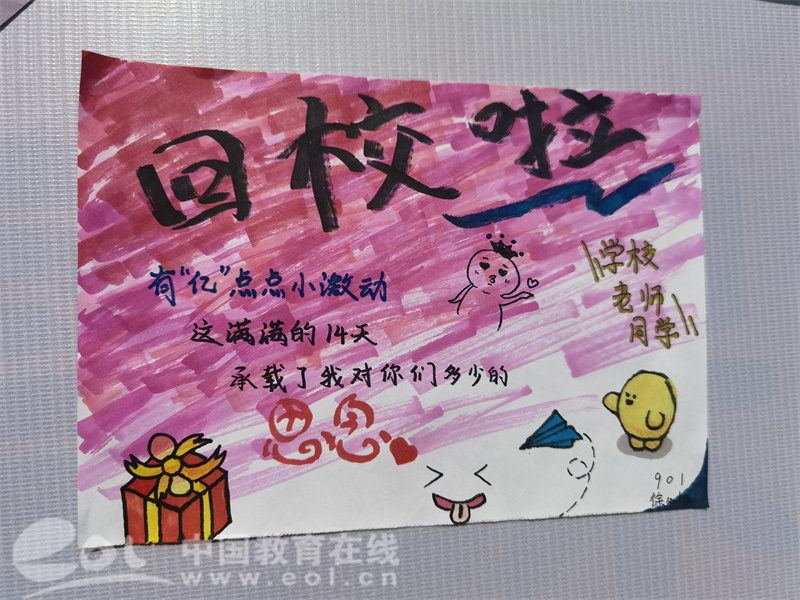 回校啦
有“亿”点点小激动
这满满的14天
承载了我对你们多少的
思念
学校
老师
同学
901
徐
eol 中国教育在线
www.eol.cn